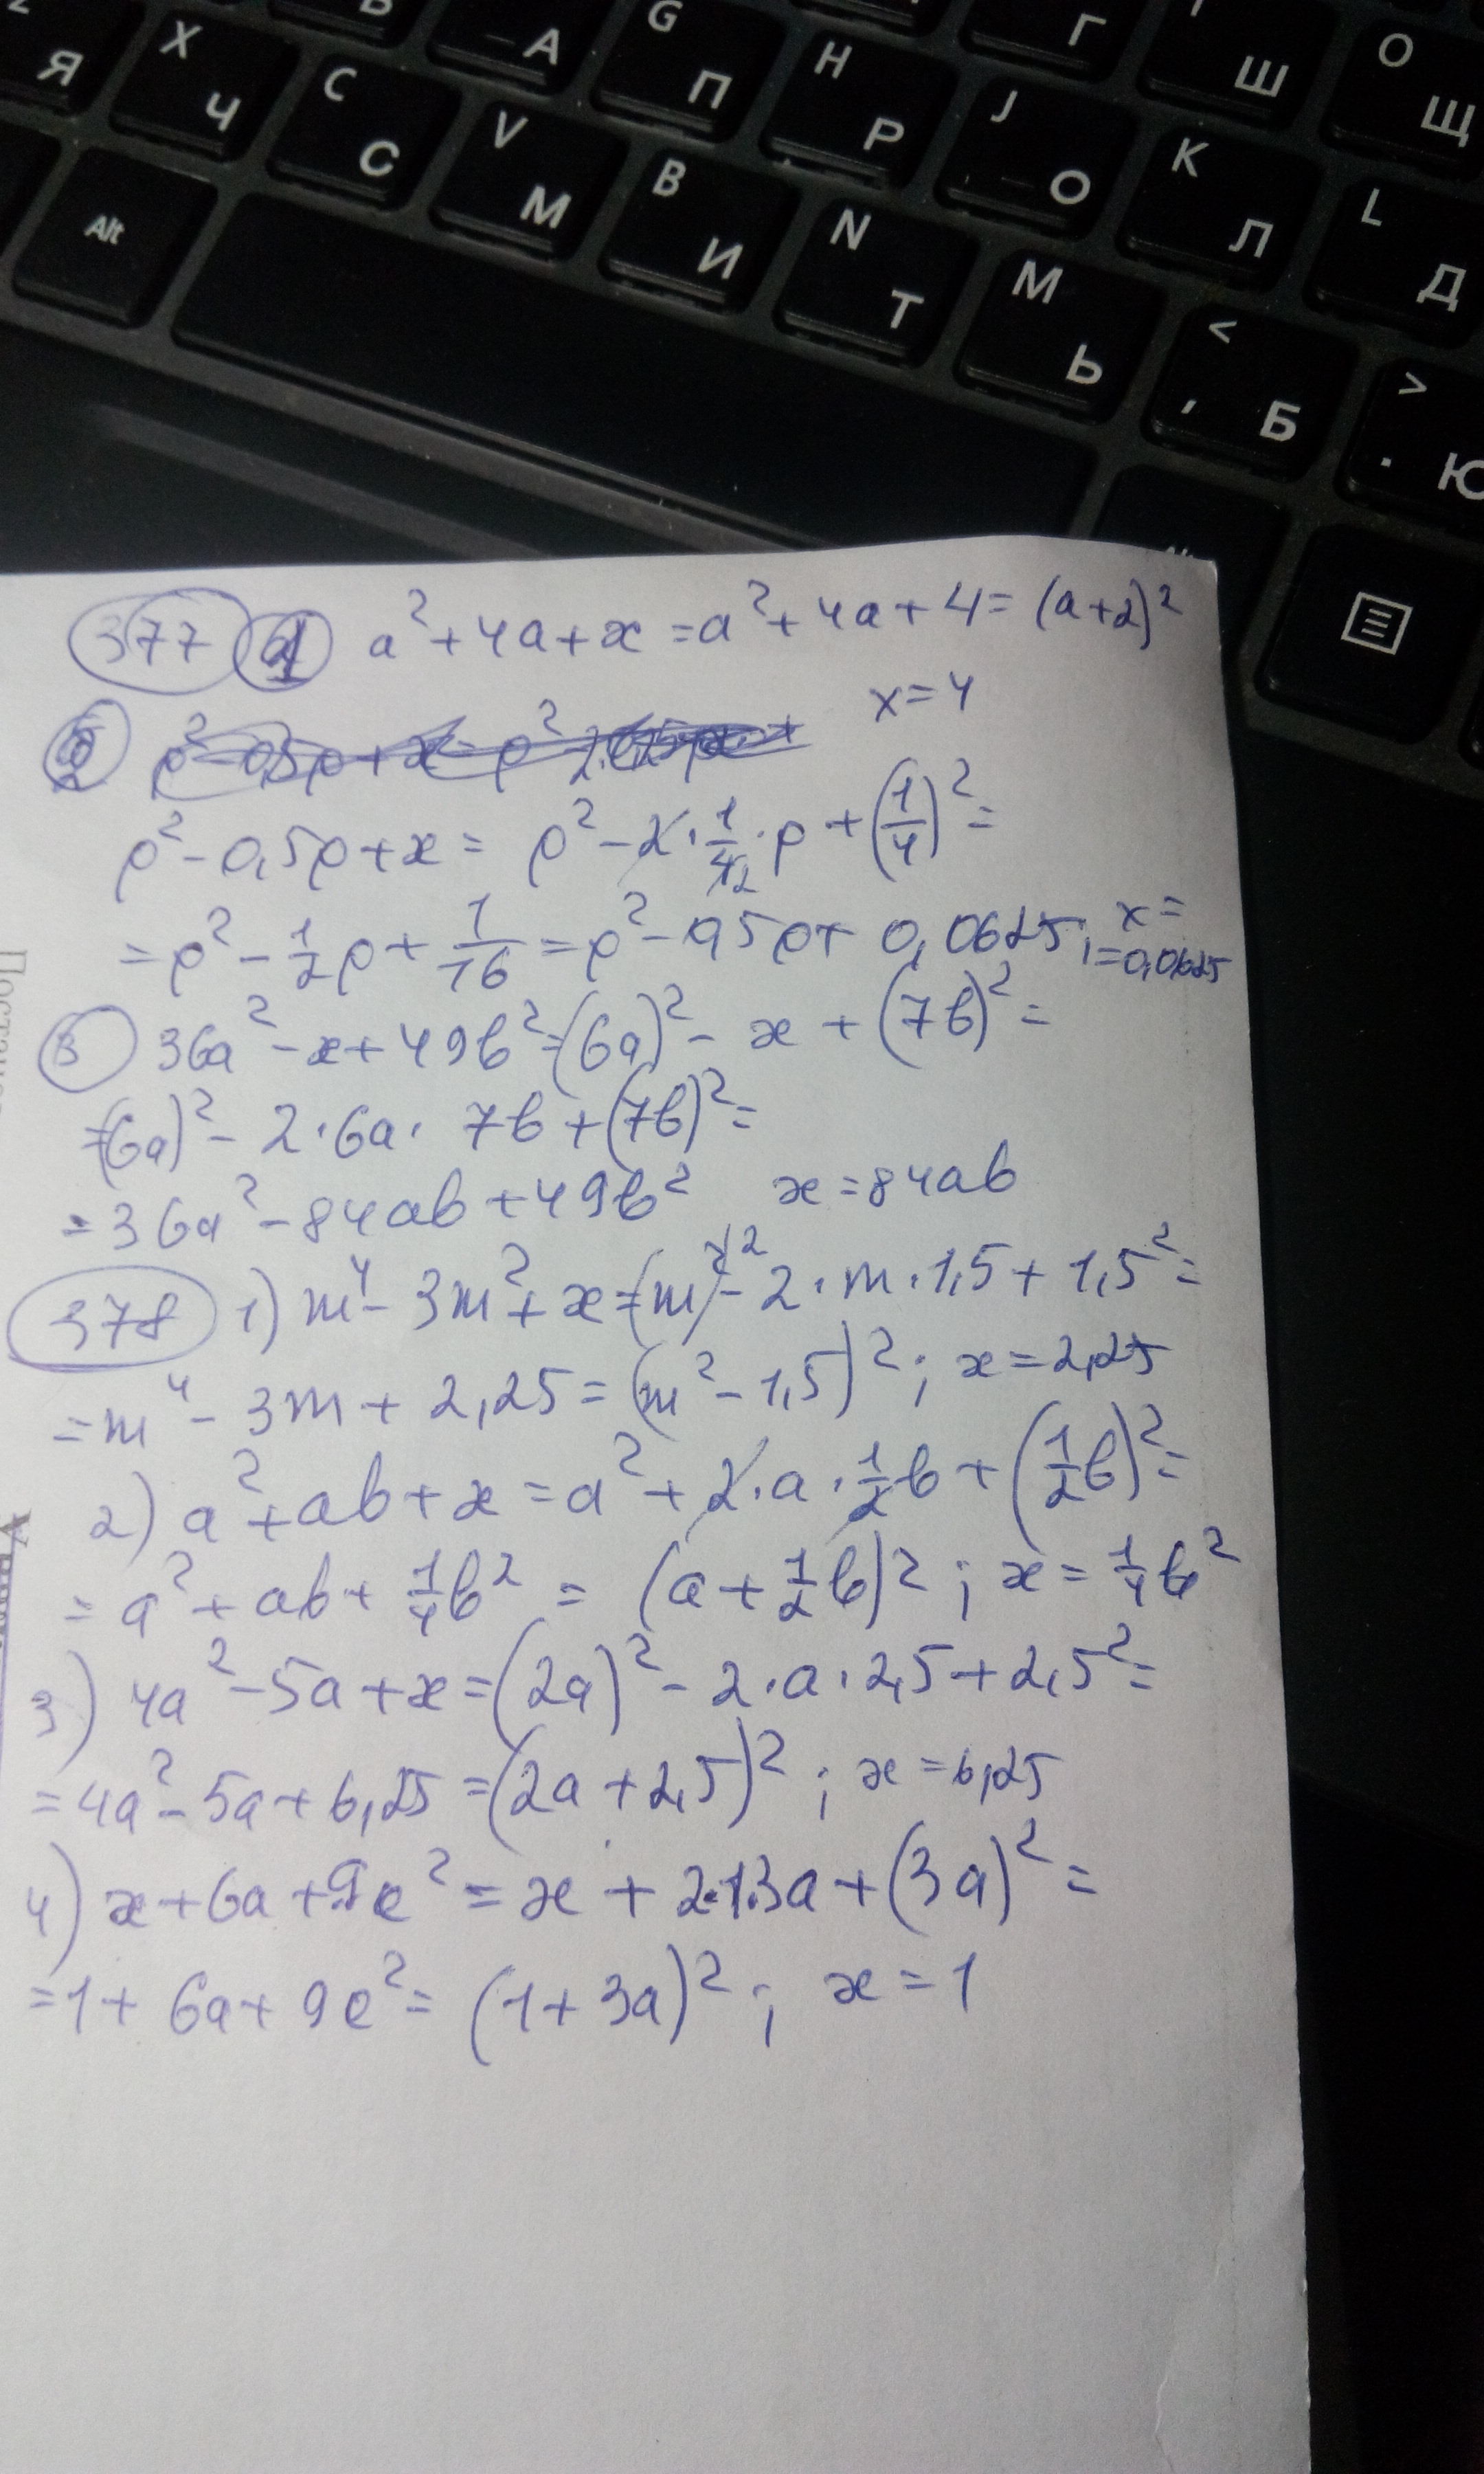 Я X Ч C С А V М G П B И H Р N Т J О M Ь Г K Л < , Б Ш L Д > . Ю О Щ
Alt
377 1 a²+4a+x=a²+4a+4=(a+2)²
x=4
p²-0,5p+x= p²-2·1/4·p+(1/4)²=
=p²-1/2p+1/16=p²-0,5p+0,0625; x=
=0,0625
3 36a²-x+49b²=(6a)²-x+(7b)²=
=(6a)²-2·6a·7b+(7b)²=
=36a²-84ab+49b² x=84ab
378 1) m⁴-3m²+x=(m²)²-2·m·1,5+1,5²=
=m⁴-3m+2,25=(m²-1,5)²; x=2,25
2) a²+ab+x=a²+2·a·1/2b+(1/2b)²=
=a²+ab+1/4b²=(a+1/2b)²; x=1/4b²
3) 4a²-5a+x=(2a)²-2·a·2,5+2,5²=
=4a²-5a+6,25=(2a+2,5)²; x=6,25
4) x+6a+9a²=x+2·1·3a+(3a)²=
=1+6a+9a²=(1+3a)²; x=1